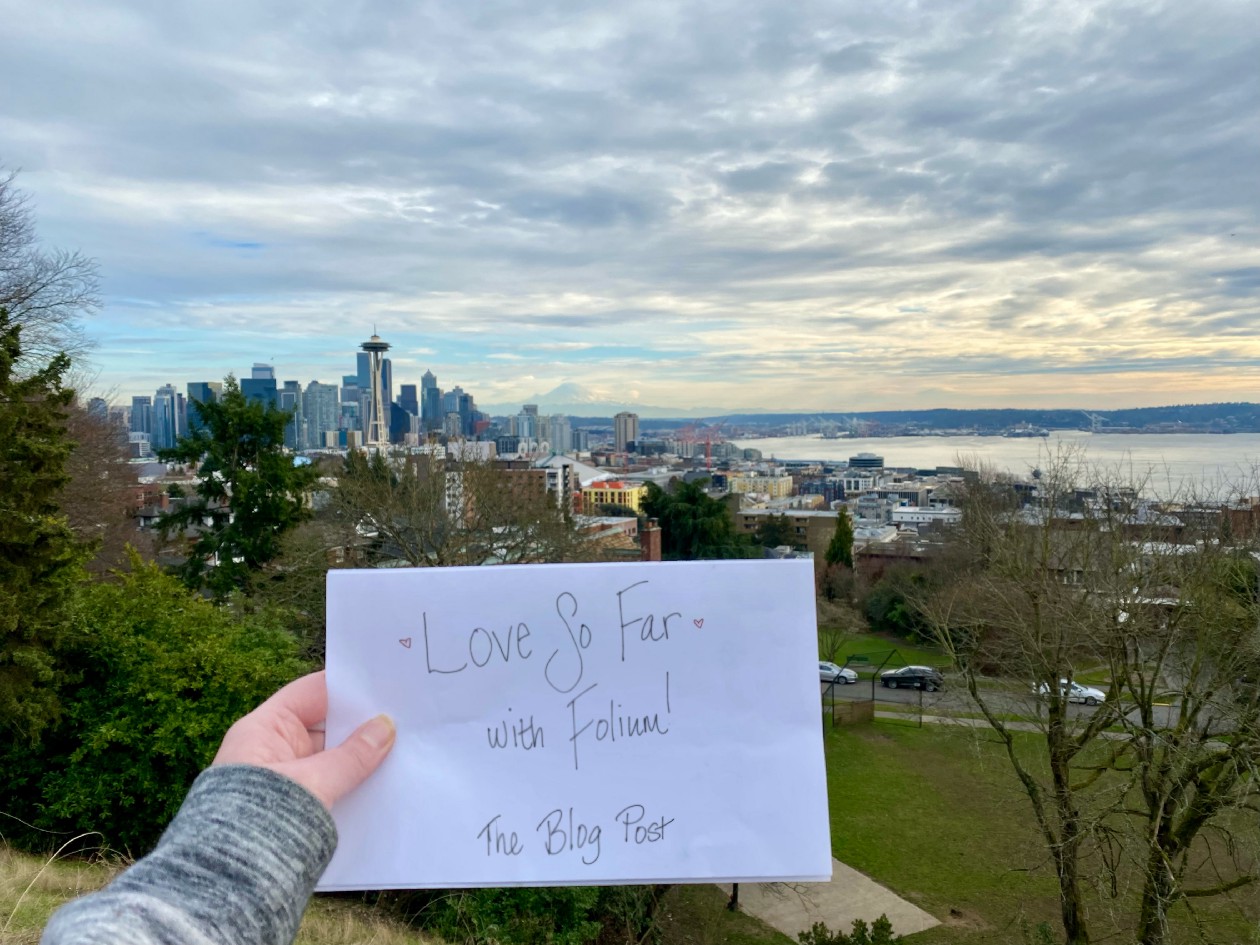 Love So Far
with Folium!
The Blog Post